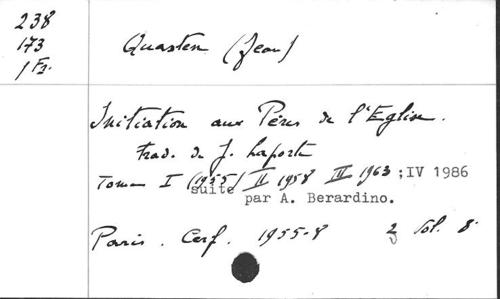 238
173
1 Fr.
Quasten (Jean)
Initiation aux Pères de l'Eglise.
Trad. de J. Laporte
Tome I (1955) II 1958 III 1963 ; IV 1986
suite par A. Berardino.
Paris. Cerf. 1955-8 Vol. 8°